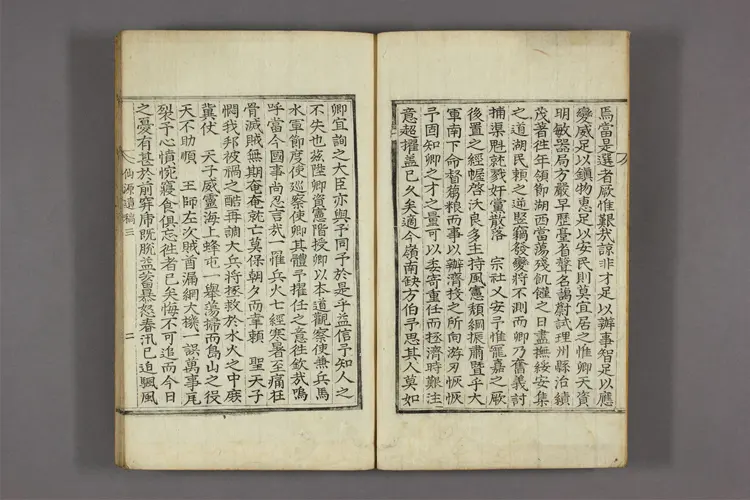 焉當是選者厥惟艱哉諒非才足以辦事智足以應
變威足以鎭物惠足以安民則莫宜居之惟卿天資
明敏器局方嚴早歷臺省聲名藹蔚試理州縣治績
茂著往年領節湖西當蕩殘飢饉之日盡撫綏安集
之道湖民賴之逆竪竊發變將不測而卿乃奮義討
捕渠魁就戮奸黨散落 宗社乂安予惟寵嘉之厥
後置之經幄啓沃良多主持風憲頹綱振肅曁乎大
軍南下命督蒭粮而事以辦濟投之所向游刃恢恢
予固知卿之才之量可以委寄重任而拯濟時艱注
意超擢盖已久矣適今嶺南缺方伯予思其人莫如
卿宜詢之大臣亦與予同予於是乎益信予知人之
不失也玆陞卿資憲階授卿以本道觀察使兼兵馬
水軍節度使巡察使卿其體予擢任之意往欽哉嗚
呼當今國事尚忍言哉一罹兵火七經寒暑至痛在
骨滅賊無期奄奄就亡莫保朝夕而幸賴 聖天子
憫我邦被禍之酷再調大兵將拯救於水火之中庶
冀仗 天子威靈海上蜂屯一擧蕩掃而島山之役
天不助順 王師左次賊首漏網大機一誤萬事瓦
裂予心憤惋寢食俱忘往者已矣悔不可追而今日
之憂有甚於前穽席旣脫益蓄忿怒春汛已迫颿風
倘源遺稿三
二